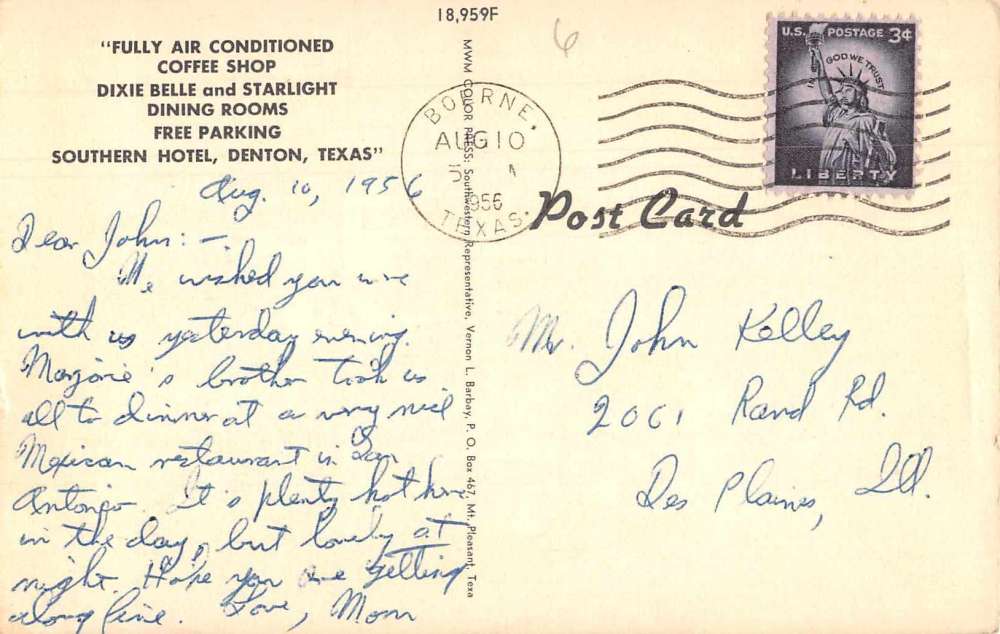 18,959F
"FULLY AIR CONDITIONED
COFFEE SHOP
DIXIE BELLE and STARLIGHT
DINING ROOMS
FREE PARKING
SOUTHERN HOTEL, DENTON, TEXAS"
Aug. 10, 1956
Dear John: —.
We wished you were
with us yesterday evening.
Marjorie's brother took us
all to dinner at a very nice
Mexican restaurant in San
Antonio. It's plenty hot here
in the day, but lovely at
night. Hope you are getting
along fine. Love, Mom
MWM COLOR PRESS: Southwestern Representative, Vernon L. Barbay, P. O. Box 467, Mt. Pleasant, Texa
6
BOERNE,
AUG 10
1956
TEXAS.
U.S. POSTAGE 3¢
IN GOD WE TRUST
LIBERTY
Post Card
Mr. John Kelley
2001 Rand Rd.
Des Plaines, Ill.